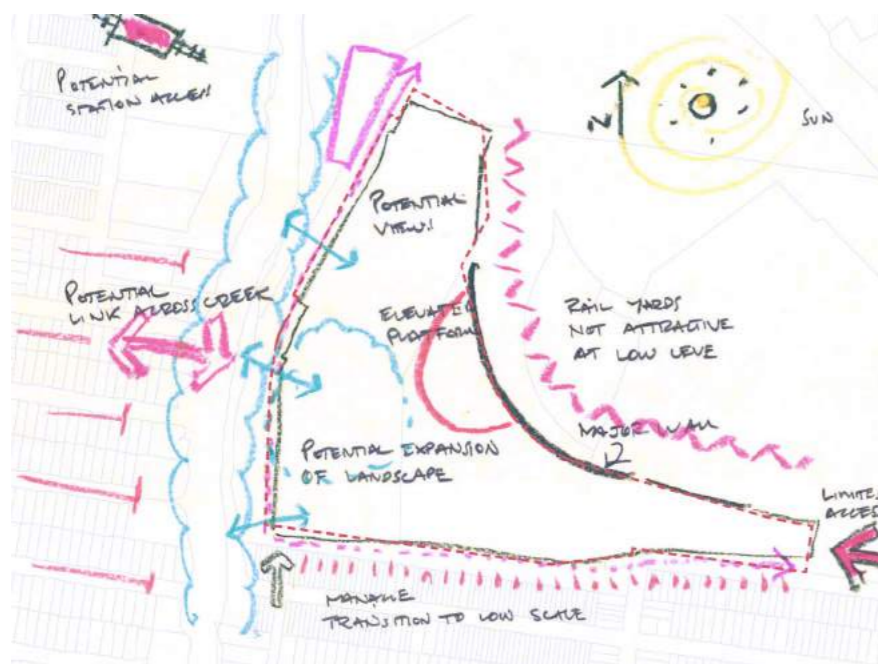 POTENTIAL
STATION ACCESS
N
SUN
POTENTIAL
VIEWS
POTENTIAL
LINK ACROSS CREEK
ELEVATED
PLATFORM
RAIL YARDS
NOT ATTRACTIVE
AT LOW LEVE
MAJOR WALL
POTENTIAL EXPANSION
OF LANDSCAPE
LIMITE
ACCES
MANAGE
TRANSITION TO LOW SCALE